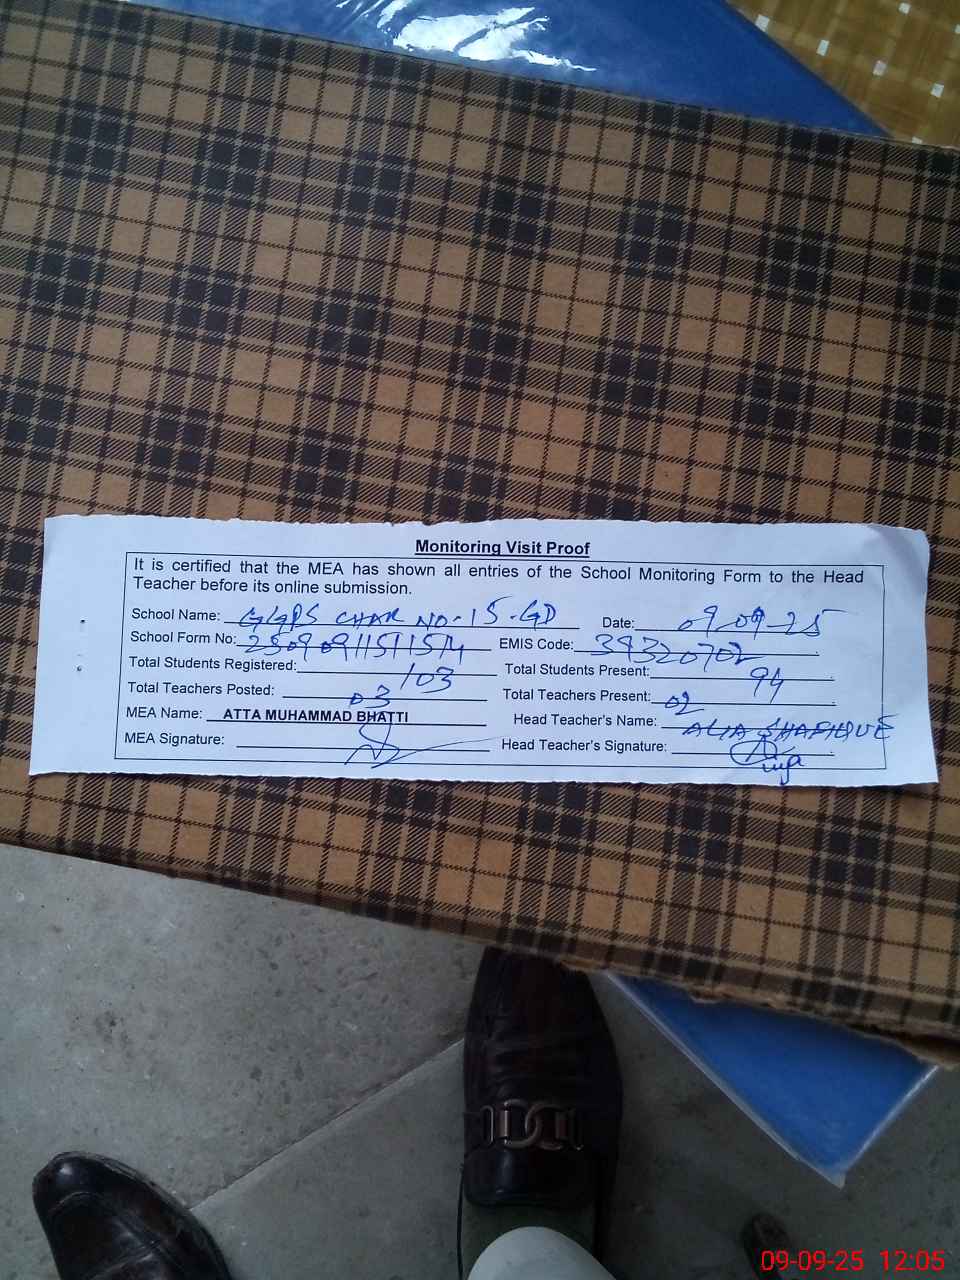 Monitoring Visit Proof
It is certified that the MEA has shown all entries of the School Monitoring Form to the Head
Teacher before its online submission.
School Name: GGPS CHAK NO-15-GD Date: 09-09-25
School Form No: EMIS Code: 39320702
Total Students Registered: 103 Total Students Present: 94
Total Teachers Posted: 03 Total Teachers Present: 02
MEA Name: ATTA MUHAMMAD BHATTI Head Teacher's Name: ALIA SHAFIQUE
MEA Signature: Head Teacher's Signature:
09-09-25 12:05